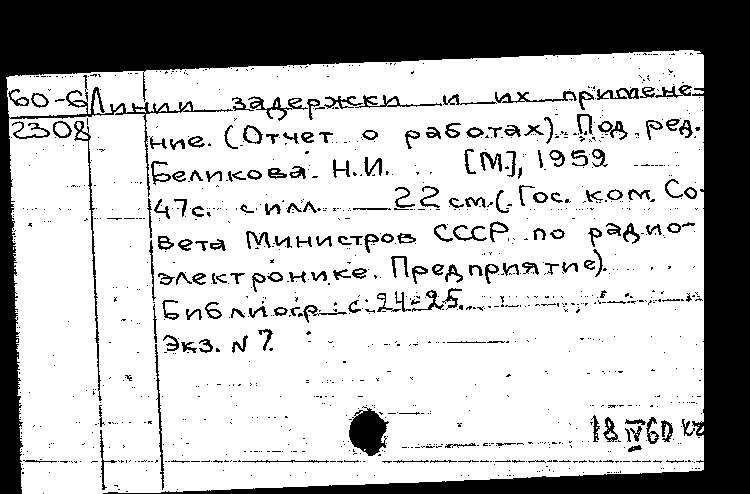 60-6 Линии задержки и их примене-
2308 ние. (Отчет о работах). Под ред.
Беликова Н.И. [М.], 1959
47с. с илл. 22 см. (Гос. ком. Со-
вета Министров СССР по радио-
электронике. Предприятие).
Библиогр: с. 24-25.
Экз. N 7.
18 IV 60